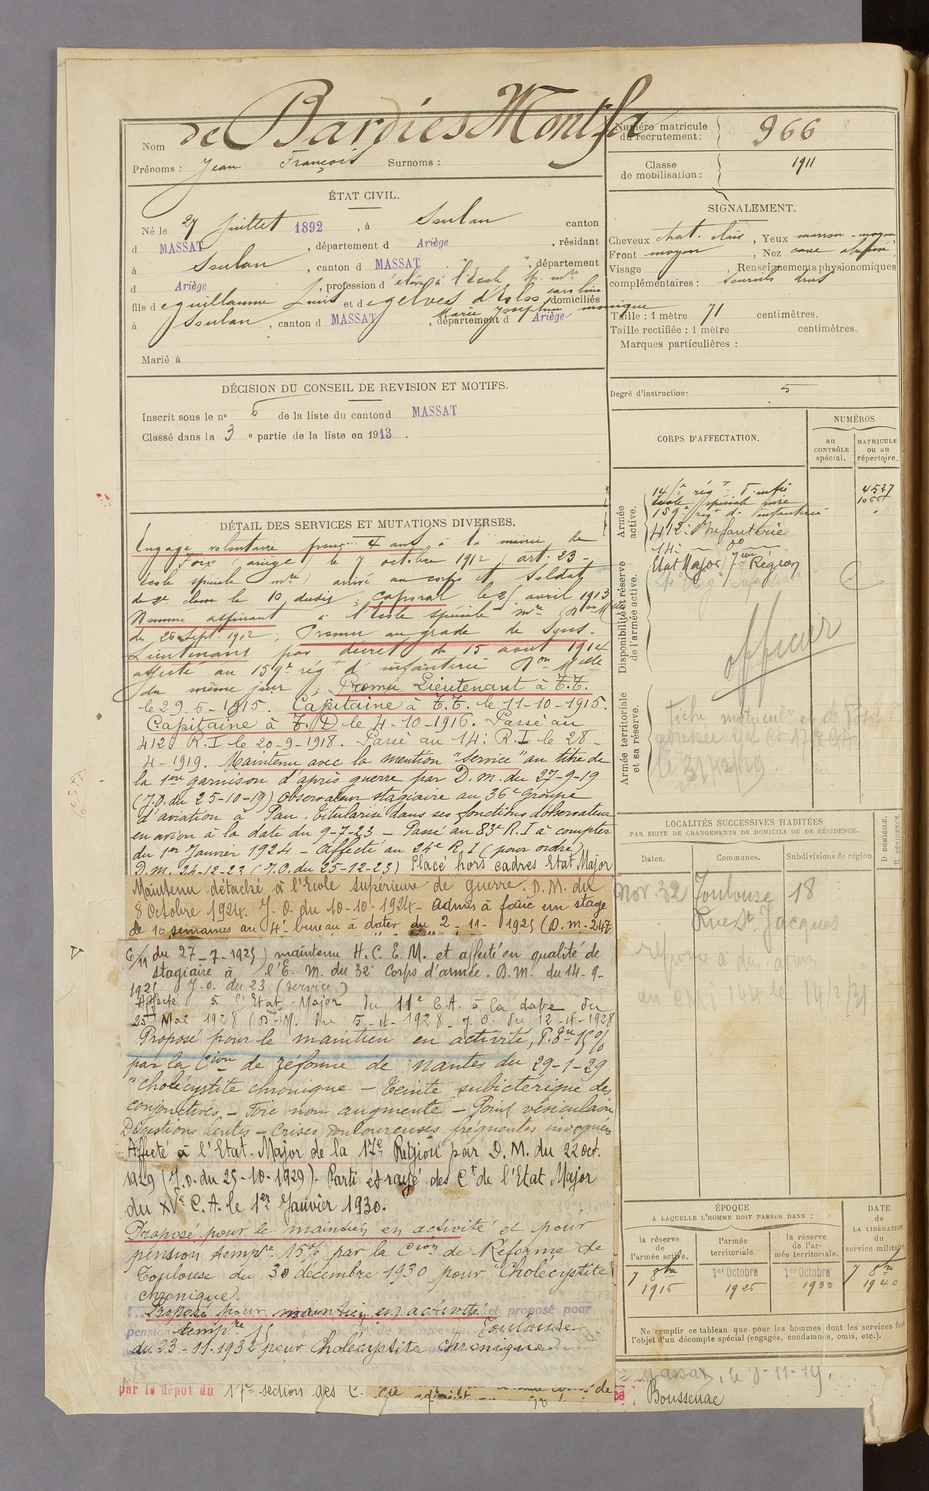 Nom de Bardies Montfa
Prénoms : Jean François Surnoms :
Numéro matricule du recrutement : 966
Classe de mobilisation : 1911
ÉTAT CIVIL.
Né le 27 Juillet 1892, à Soulan canton
d MASSAT, département d Ariège, résidant
à Soulan, canton d MASSAT, département
d Ariège, profession d élève à l'école Sp. mre
fils de guillaume Louis et d
à Soulan, canton d MASSAT, département d Ariège, domiciliés
Marie Joséphine
Marié à
SIGNALEMENT.
Cheveux chat. clair, Yeux marron moyen
Front moyen, Nez cave
Visage , Renseignements physionomiques
complémentaires : sourcils drus
Taille : 1 mètre 71 centimètres.
Taille rectifiée : 1 mètre centimètres.
Marques particulières :
Degré d'instruction: 5
DÉCISION DU CONSEIL DE REVISION ET MOTIFS.
Inscrit sous le no 6 de la liste du canton d MASSAT
Classé dans la 3 e partie de la liste en 1913.
CORPS D'AFFECTATION.
NUMÉROS
au CONTRÔLE spécial.
MATRICULE ou au répertoire.
Armée active.
14e rég t d'infie 4527
école spéciale mre
159e rég t d'infanterie
412e Infanterie
14e do
Disponibilité et réserve de l'armée active.
Etat Major 17eme Région
officier
Armée territoriale et sa réserve.
DÉTAIL DES SERVICES ET MUTATIONS DIVERSES.
Engagé volontaire pour 4 ans à la mairie de
Foix (ariège) le 7 octobre 1912 (art. 23 -
école spéciale mre) arrivé au corps et Soldat
de 2e classe le 10 dudit, Caporal le 21 avril 1913
Nommé aspirant à l'école spéciale mre
du 26 Sept 1912; Promu au grade de Sous-
Lieutenant par décret du 15 aout 1914
affecté au 159e rég t d'infanterie
du même jour; Promu Lieutenant à T.T.
le 29-6-1915. Capitaine à T.T. le 11-10-1915.
Capitaine à T.D le 4-10-1916. Passé au
412e R.I le 20-9-1918. Passé au 14e R.I le 28-
4-1919. Maintenu avec la mention "Service" au titre de
la 1ere garnison d'après guerre par D.m. du 27-9-19
(J.O. du 25-10-19) Observateur stagiaire au 36e Groupe
d'aviation à Pau. Titularisé dans ses fonctions d'observateur
en avion à la date du 9-7-23 - Passé au 83e R.I à compter
du 1er Janvier 1924 - Affecté au 24e R.I (pour ordre)
D.m. 24-12-23 (J.O. du 25-12-23) Placé hors cadres Etat Major
Maintenu détaché à l'Ecole supérieure de guerre. D.M. du
8 Octobre 1924. J.O. du 10-10-1924 - Admis à faire un stage
de 10 semaines au 4e bureau à dater du 2-11-1925 (D.m. 247
6/11 du 27-7-1925) maintenu H.C.E.M. et affecté en qualité de
stagiaire à l'E.M. du 32e Corps d'armée. D.M. du 14-9-
J.O. du 23 (service)
Affecté à l'Etat-Major du 11e C.A. à la date du
25 Mai 1928 (D.M. du 5-4-1928 J.O. du 12-4-1928
Proposé pour le maintien en activité,
par la Cion de réforme de Nantes du 29-1-29
"cholécystite chronique - Teinte subictérique des
conjonctives - Foie non augmenté - Point vésiculaire
Digestions lentes - crises douloureuses fréquentes invoquées
Affecté à l'Etat-Major de la 17e Région par D.M. du 22 oct.
1929 (J.O. du 25-10-1929). Parti et rayé des Ctes de l'Etat Major
du XIe C.A. le 1er Janvier 1930.
Proposé pour le maintien en activité et pour
pension tempre 15% par la Cion de Réforme de
Toulouse du 30 décembre 1930 pour "Cholécystite
chronique.
Proposé pour maintien en activité et proposé pour
pension tempre 15 Toulouse
du 23-11-1932 pour Cholécystite chronique
par le dépot du 17e section des C.
LOCALITÉS SUCCESSIVES HABITÉES
PAR SUITE DE CHANGEMENTS DE DOMICILE OU DE RÉSIDENCE.
Dates. Communes. Subdivisions de région
D. DOMICILE. R. RÉSIDENCE
Nov 32 Toulouse 18
Rue St Jacques
ÉPOQUE
A LAQUELLE L'HOMME DOIT PASSER DANS :
la réserve de l'armée active. l'armée territoriale. la réserve de l'armée territoriale.
DATE de LA LIBÉRATION du service militaire
7 8bre 1915 1er Octobre 1926 1er Octobre 1933 7 8bre 1940
Ne remplir ce tableau que pour les hommes dont les services font l'objet d'un décompte spécial (engagés, condamnés, omis, etc.).
Massat, le 8-11-19.
Boussenac